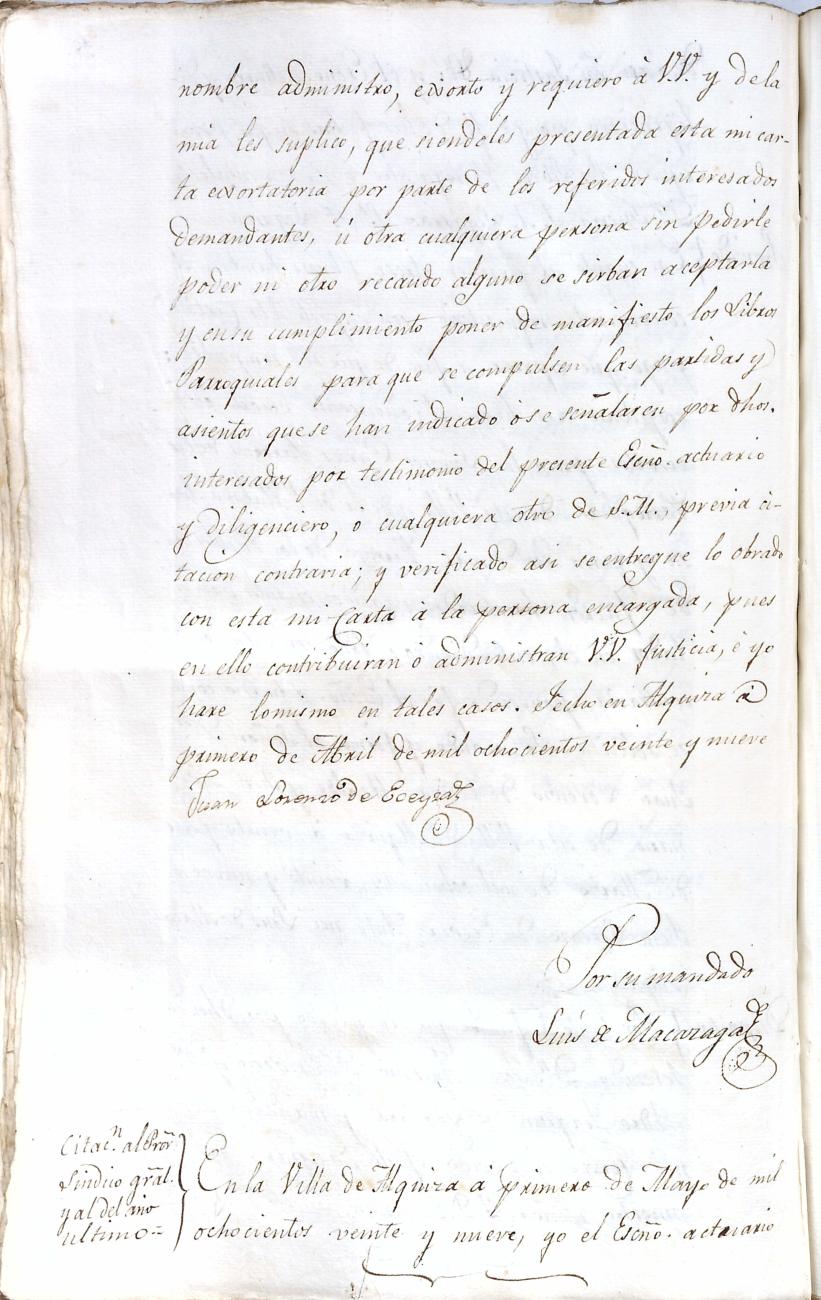 nombre administro, exorto y requiero à V.V. y dela
mia les suplico, que siendoles presentada esta mi car-
ta exortatoria por parte de los referidos interesados
demandantes, ú otra cualquiera persona sin pedirle
poder ni otro recaudo alguno se sirban aceptarla
y ensu cumplimiento poner de manifiesto los Libros
Parroquiales para que se compulsen las partidas y
asientos quese han indicado ó se señalaren por dhos.
interesados por testimonio del presente Escño. actuario
y diligenciero, ó cualquiera otro de S.M., previa ci-
tacion contraria; y verificado asi se entregue lo obrado
con esta mi Carta à la persona encargada, pues
en ello contribuiran ó administran V.V. Justicia, é yo
hare lomismo en tales casos. Fecho en Alquiza à
primero de Abril de mil ochocientos veinte y nueve
Juan Lorenzo de Eceyza
Por su mandado
Luis de Macazaga
Citacn. al Pror.
Sindico gral.
y al del año
ultimo=
En la Villa de Alquiza à primero de Mayo de mil
ochocientos veinte y nueve, yo el Escño. actuario